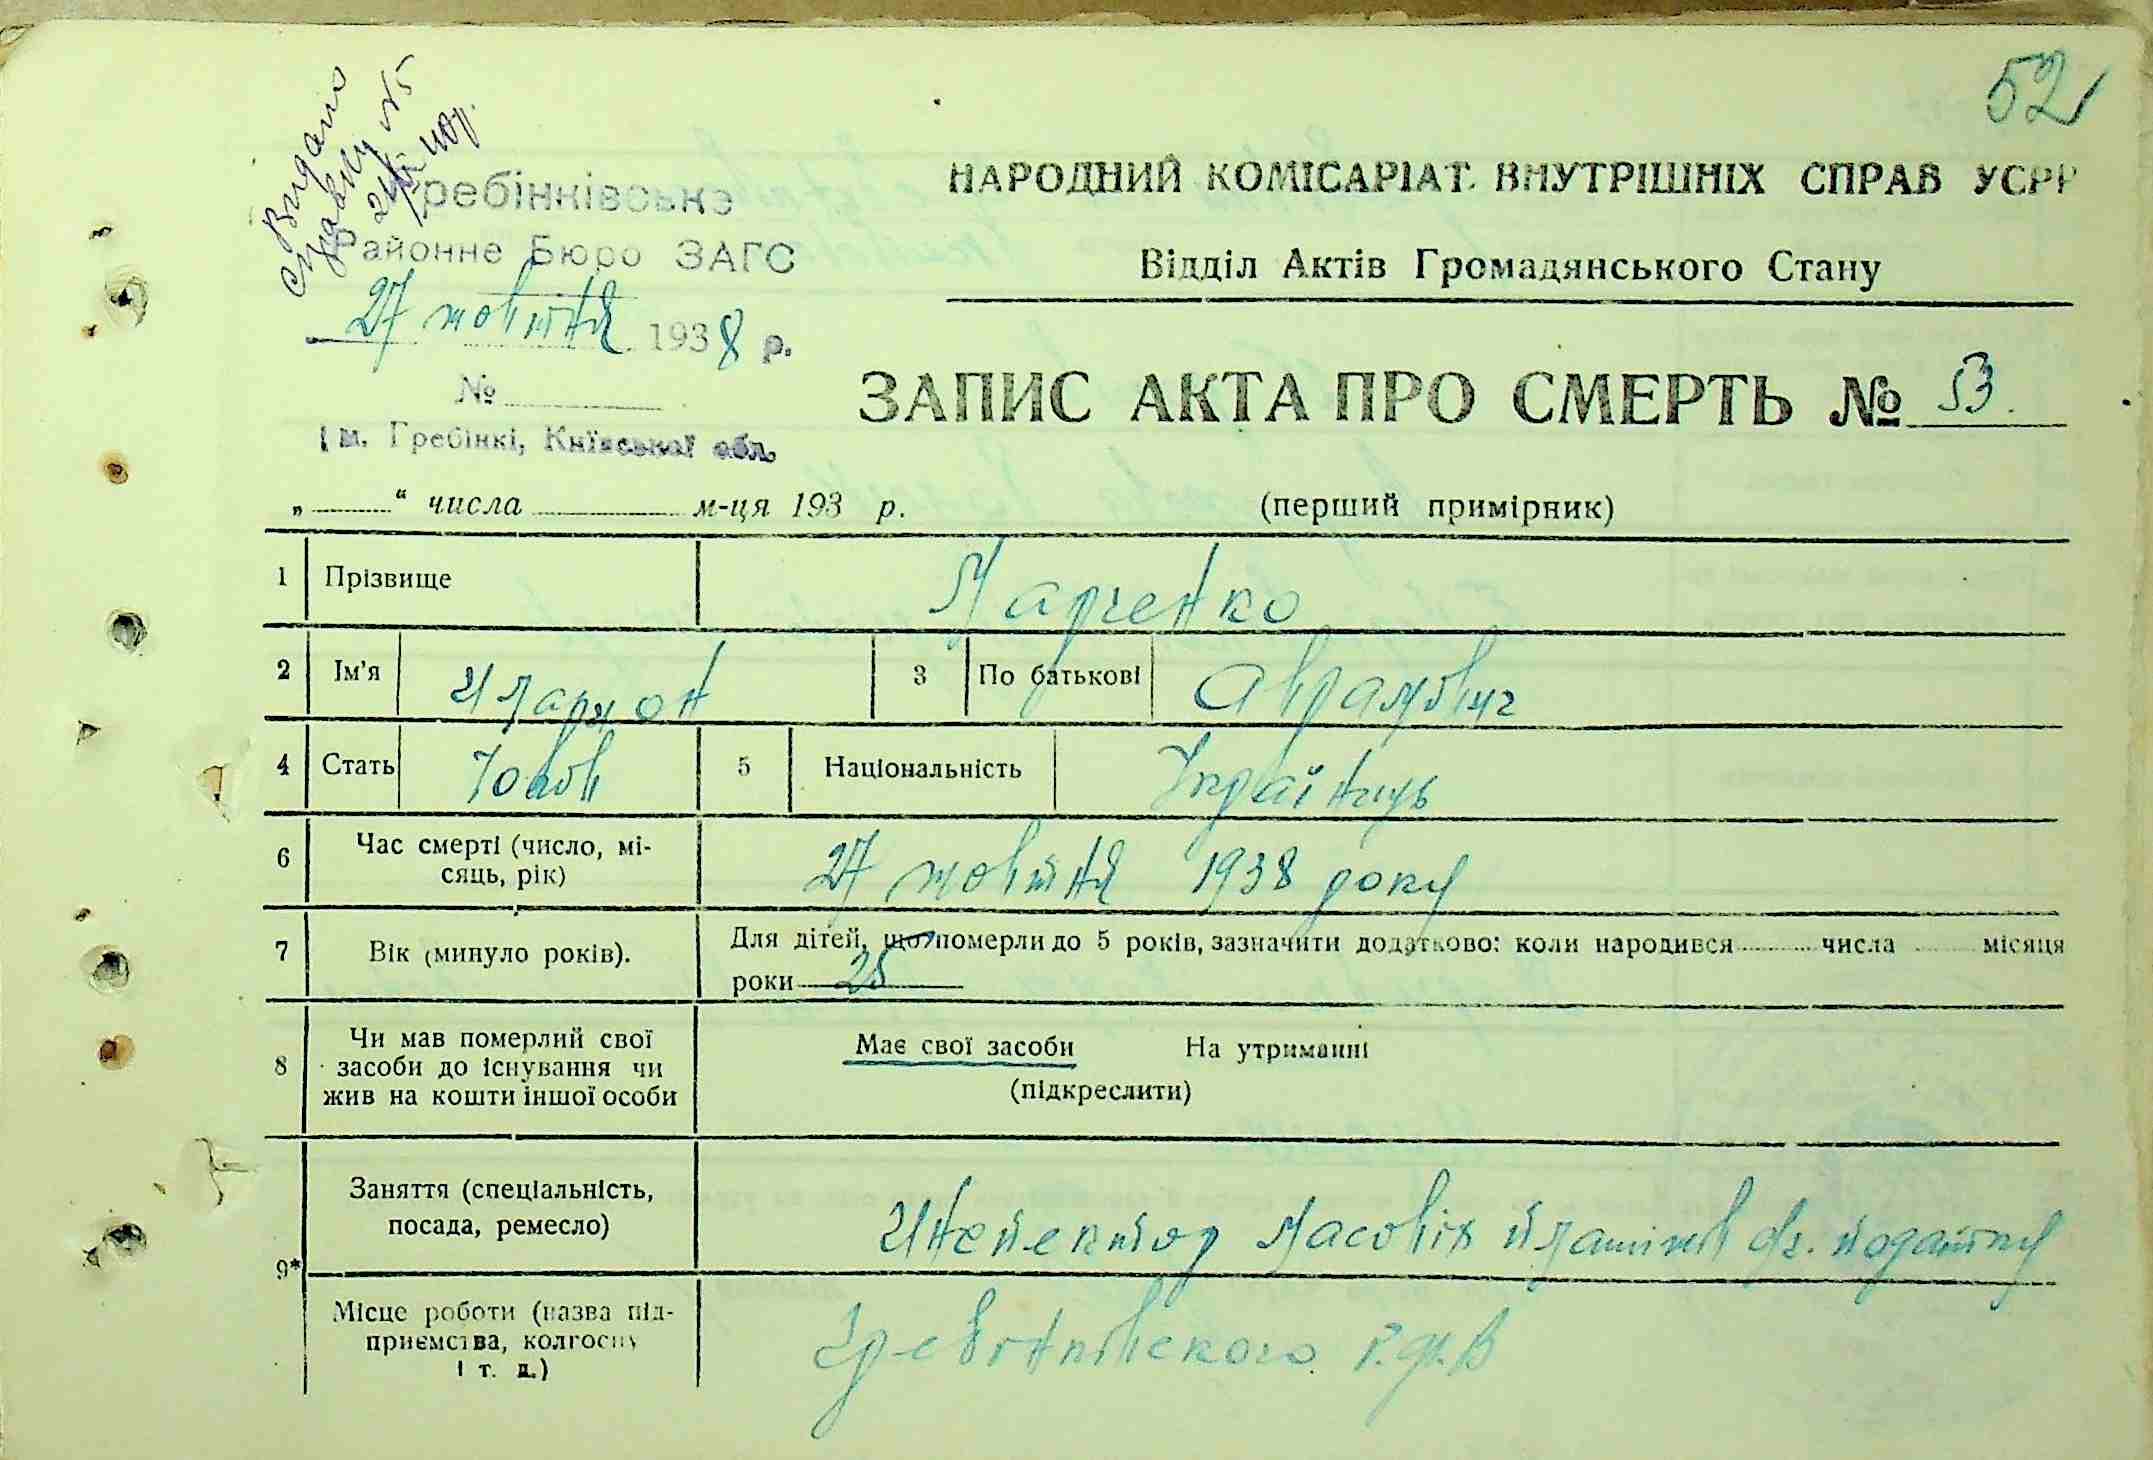 52
Видано
справку №5
Гребінківське
Районне Бюро ЗАГС
27 жовтня 1938 р.
№
м. Гребінкі, Київської обл.
НАРОДНИЙ КОМІСАРІАТ ВНУТРІШНІХ СПРАВ УСРР
Відділ Актів Громадянського Стану
ЗАПИС АКТА ПРО СМЕРТЬ № 53.
„ “ числа м-ця 193 р. (перший примірник)
1 Прізвище Марченко
2 Ім'я Иларион 3 По батькові Аврамович
4 Стать Чолов 5 Національність Українець
6 Час смерті (число, мі-
сяць, рік) 27 жовтня 1938 року
7 Вік (минуло років). Для дітей, що померли до 5 років, зазначити додатково: коли народився числа місяця
роки 25
8 Чи мав померлий свої
засоби до існування чи
жив на кошти іншої особи
Має свої засоби На утриманні
(підкреслити)
9* Заняття (спеціальність,
посада, ремесло) Инспектор масовіх платіжів податку
Місце роботи (назва під-
приємства, колгоспу
і т. д.) Гребінківського